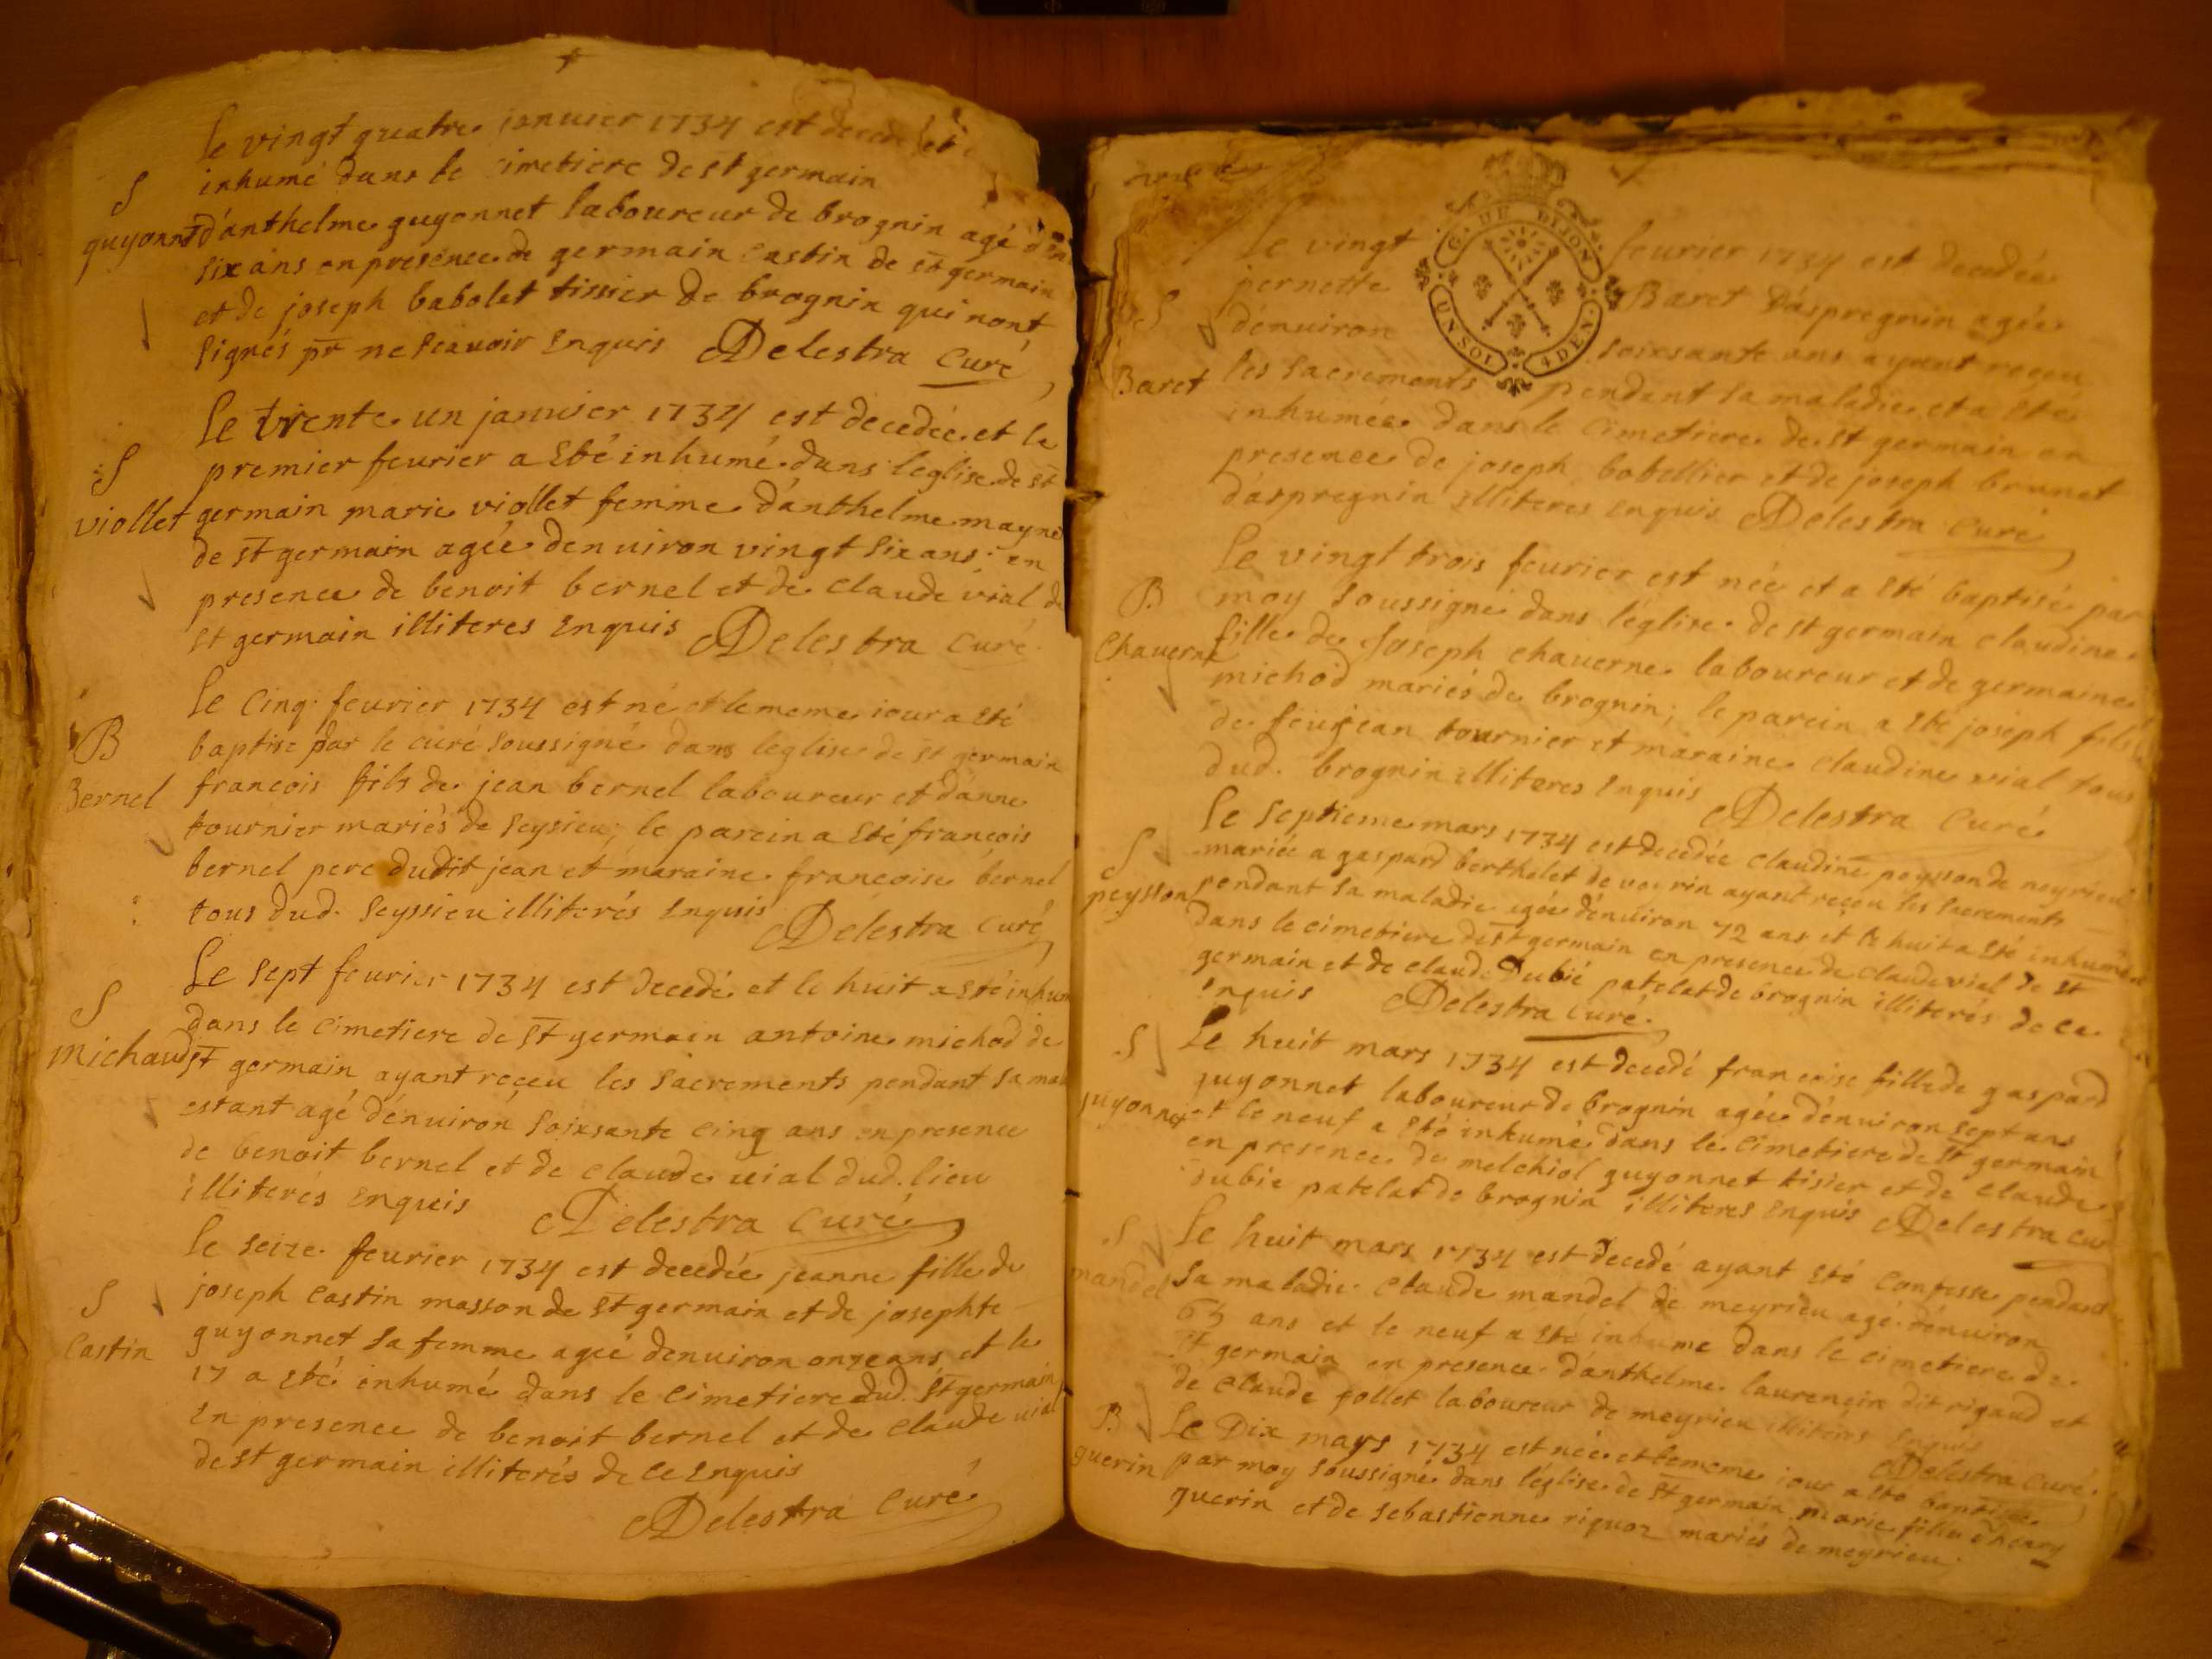 le vingt quatre januier 1734 est decedé et
inhumé dans le cimetiere de st germain
S
guyonnet
d'anthelme guyonnet laboureur de brognin agé d'en
six ans en presence de germain Castin de st germain
et de joseph babolet tissier de brognin qui nont
signés pr ne scauoir Enquis Delestra Curé
Le trente un januier 1734 est decedée et le
premier feurier a Eté inhumé dans leglise de st
S
viollet
germain marie viollet femme d'anthelme mayne
de st germain agée denuiron vingt six ans en
presence de benoit bernel et de Claude vial de
st germain illiteres Enquis Delestra Curé
Le Cinq feurier 1734 est né et le meme iour a Eté
B
Bernel
baptise par le curé soussigné dans leglise de st germain
francois fils de jean bernel laboureur et d'anne
tournier mariés de Seysieu; le parein a Eté francois
bernel pere dudit jean et maraine francoise bernel
tous dud. Seyssieu illiterés Enquis Delestra Curé
Le sept feurier 1734 est decedé et le huit a Eté inhum
S
Michaud
dans le Cimetiere de st germain antoine michod de
st germain ayant reçeu les Sacrements pendant sa mal
estant agé d'enuiron soixsante Cinq ans en presence
de benoit bernel et de Claude uial dud. lieu
illiterés Enquis Delestra Curé
Le seize feurier 1734 est decedée jeanne fille de
S
Castin
joseph Castin masson de st germain et de josephte
guyonnet sa femme ageé denuiron onze ans et le
17 a Eté inhumé dans le Cimetiere dud. st germain
En presence de benoit bernel et de Claude uial
de st germain illiterés de ce Enquis
Delestra Curé
G. DE DIJON
UN SOL 4 DEN.
Le vingt feurier 1734 est decedée
pernette Baret D'aspregnin agée
S
Baret
d'enuiron soixsante ans ayant reçeu
les sacrements pendant sa maladie et a Eté
inhumée dans le Cimetiere de st germain en
presence de joseph bobellier et de joseph brunet
d'aspregnin illiteres Enquis Delestra Curé
Le vingt trois feurier est née et a Eté baptisé par
B
Chauerne
moy soussigné dans l'église de st germain claudine
fille de Joseph chauerne laboureur et de germaine
michod mariés de brognin; le parein a Eté joseph fils
de feu jean tournier et maraine Claudine vial tous
dud. brognin illiteres Enquis Delestra Curé
Le septieme mars 1734 est decedée Claudine peysson de neyrieu
S
peysson
mariée a gaspard berthelet de veyrin ayant reçeu les sacrements
pendant sa maladie agée d'enuiron 72 ans et le huit a Eté inhumée
dans le cimetiere de st germain en presence de Claude vial de st
germain et de Claude Dubié patelat de brognin illiterés de ce
enquis Delestra Curé
S
guyonnet
Le huit mars 1734 est decedé francoise fille de gaspard
guyonnet laboureur de brognin agée d'enuiron sept ans
et le neuf a Eté inhumé dans le Cimetiere de st germain
en presence de melchiol guyonnet tisier et de Claude
dubie patelat de brognin illiteres Enquis Delestra Cur
S
mandel
Le huit mars 1734 est decedé ayant Eté Confesse pendant
sa maladie Claude mandel de meyrieu agé d'enuiron
65 ans et le neuf a Eté inhume dans le Cimetiere de
st germain en presence d'anthelme laurencin dit rigaud et
de Claude follet laboureur de meyrieu illiterés Enquis
Delestra Curé
B
guerin
Le Dix mars 1734 est née et le meme iour a Eté baptisée
par moy soussigné dans l'église de st germain marie fille d'henry
guerin et de Sebastienne riquoz mariés de meyrieu;